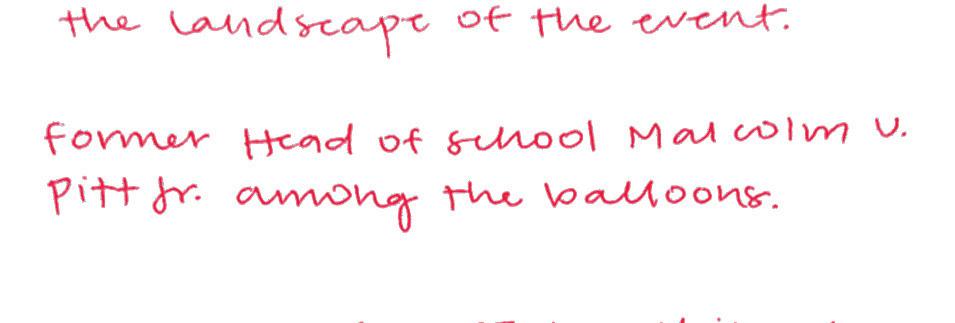 the landscape of the event.
Former Head of School Malcolm U.
Pitt Jr. among the balloons.